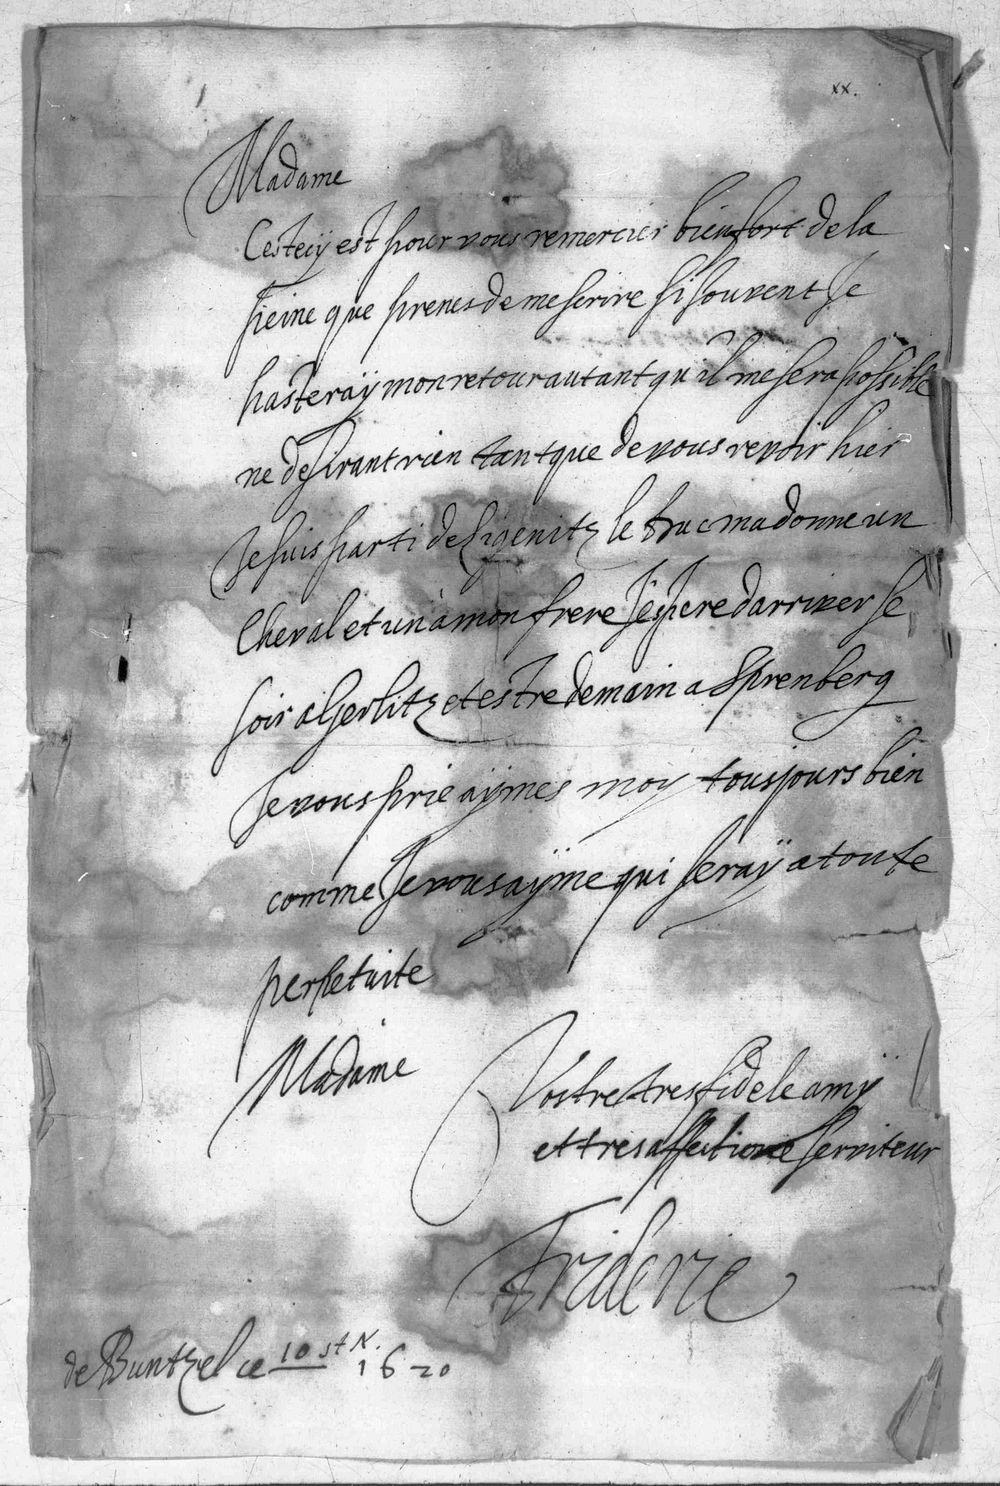 xx.
Madame
Cestecÿ est pour vous remercier bien fort de la
peine que prenes de mescrire si souvent Je
hasteraÿ mon retour autant qu il me sera possible
ne desirant rien tant que de vous revoir hier
Je suis parti de Ligenitz le Duc ma donne un
Cheval et un a mon frere Jespere darriver se
soir a Gerlitz et estre demain a Sprenberg
Je vous prie aÿmes moy tousjours bien
comme Je vous aÿme qui seraÿ a toute
perpetuite
Madame
Vostre tresfidele amÿ
et tresaffectione serviteur
Frideric
de Buntzel ce 10 st N.
1620